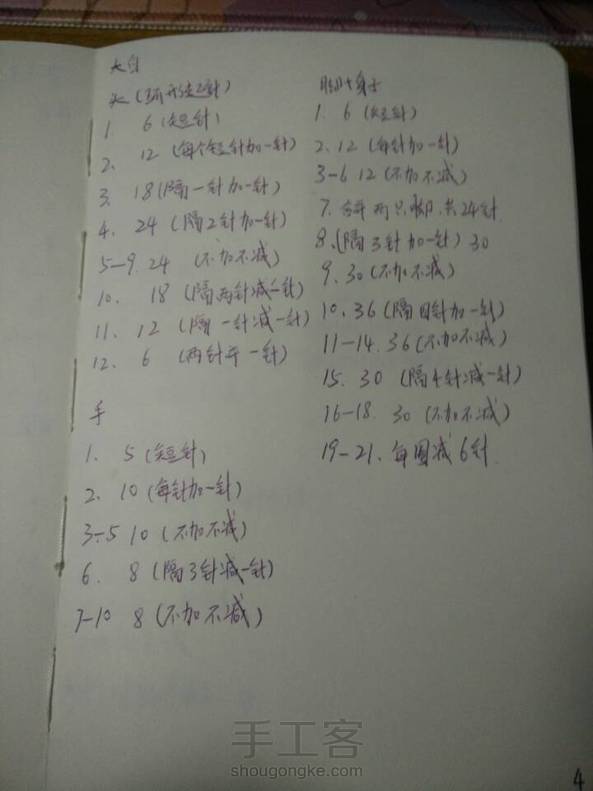 大白
头(环形起针)
1. 6(短针)
2. 12(每个短针加一针)
3. 18(隔一针加一针)
4. 24(隔2针加一针)
5—9. 24 (不加不减)
10. 18(隔两针减一针)
11. 12(隔一针减一针)
12. 6(两针并一针)
手
1. 5(短针)
2. 10(每针加一针)
3-5 10(不加不减)
6. 8(隔3针减一针)
7-10 8(不加不减)
脚+身子
1. 6(短针)
2. 12(每针加一针)
3-6 12(不加不减)
7. 合并两只脚,共24针
8.(隔3针加一针)30
9. 30(不加不减)
10. 36(隔四针加一针)
11-14. 36(不加不减)
15. 30(隔4针减一针)
16-18. 30(不加不减)
19-21. 每圈减6针
手工客
shougongke.com
4